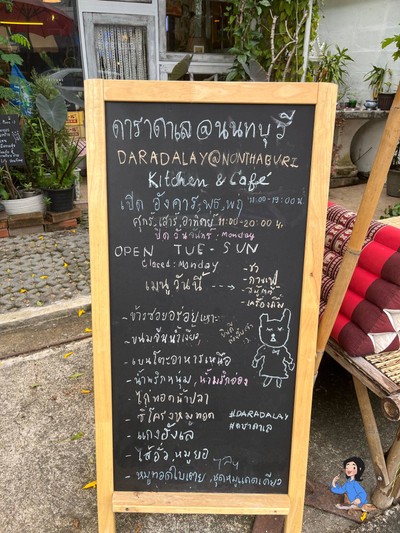 ดาราดาเล@นนทบุรี
DARADALAY@NONTHABURI
Kitchen & Café
เปิด อังคาร, พุธ, พฤ 11:00-19:00 น.
ศุกร์, เสาร์, อาทิตย์ 11:00-20:00 น.
ปิดวันจันทร์ : Monday
OPEN TUE - SUN
Closed : Monday
เมนูวันนี้
- ชา
- กาแฟ
- เครื่องดื่ม
- ข้าวซอยอร่อยเหาะ
- ขนมจีนน้ำเงี้ยว
- แบนโตะอาหารเหนือ
- น้ำพริกหนุ่ม, น้ำพริกอ่อง
- ไก่ทอดน้ำปลา
- ซี่โครงหมูทอด
- แกงฮังเล
- ไส้อั่ว, หมูยอ
- หมูทอดใบเตย, ชุดหมูแดดเดียว
#DARADALAY
#ดาราดาเล